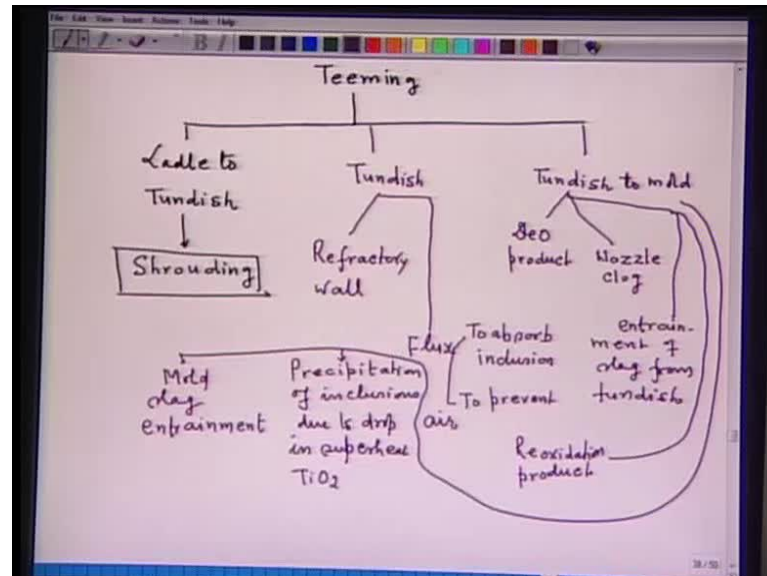 File Edit View Insert Actions Tools Help
Teeming
Ladle to
Tundish
Shrouding
Tundish
Refractory
wall
Flux
To absorb
inclusion
To prevent
air
Tundish to mold
Deo
product
Nozzle
clog
entrain-
ment of
slag from
tundish
Reoxidation
product
Mold
slag
entrainment
Precipitation
of inclusions
due to drop
in superheat
TiO2
38/50